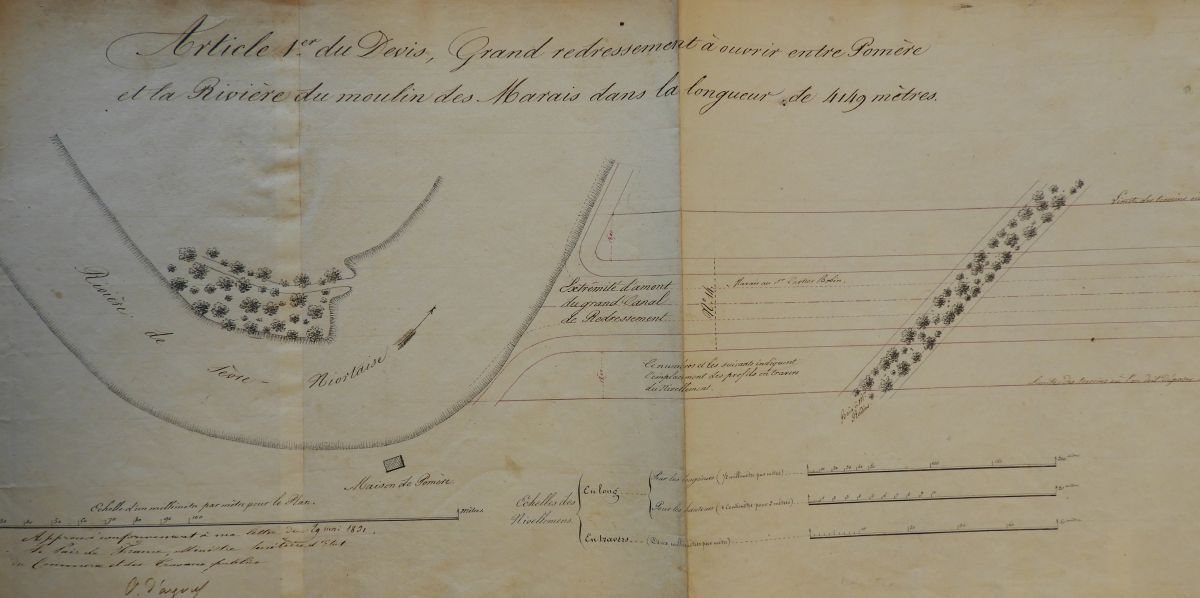 Article 1.er du Devis, Grand redressement à ouvrir entre Pomère
et la Rivière du moulin des Marais dans la longueur de 4149 mètres.
Rivière de Sèvre - Niortaise
Extrémité d'amont
du grand Canal
de Redressement
N.º 41.
Marais au S.r
Limite des terrains
Ce numéro et les suivants indiquent
l'emplacement des profils en travers
du Nivellement.
Limite des terrains
Maison de Pomère
Echelle d'un millimètre par mètre pour le Plan.
100
mètres
Approuvé conformément à ma lettre du 29 mai 1831.
Le Pair de France, Ministre Secrétaire d'Etat
du Commerce et des travaux publics
Echelles des
Nivellemens.
En long
Pour les longueurs (½ millimètre par mètre)
Pour les hauteurs
En travers
(Deux millimètres par mètre)